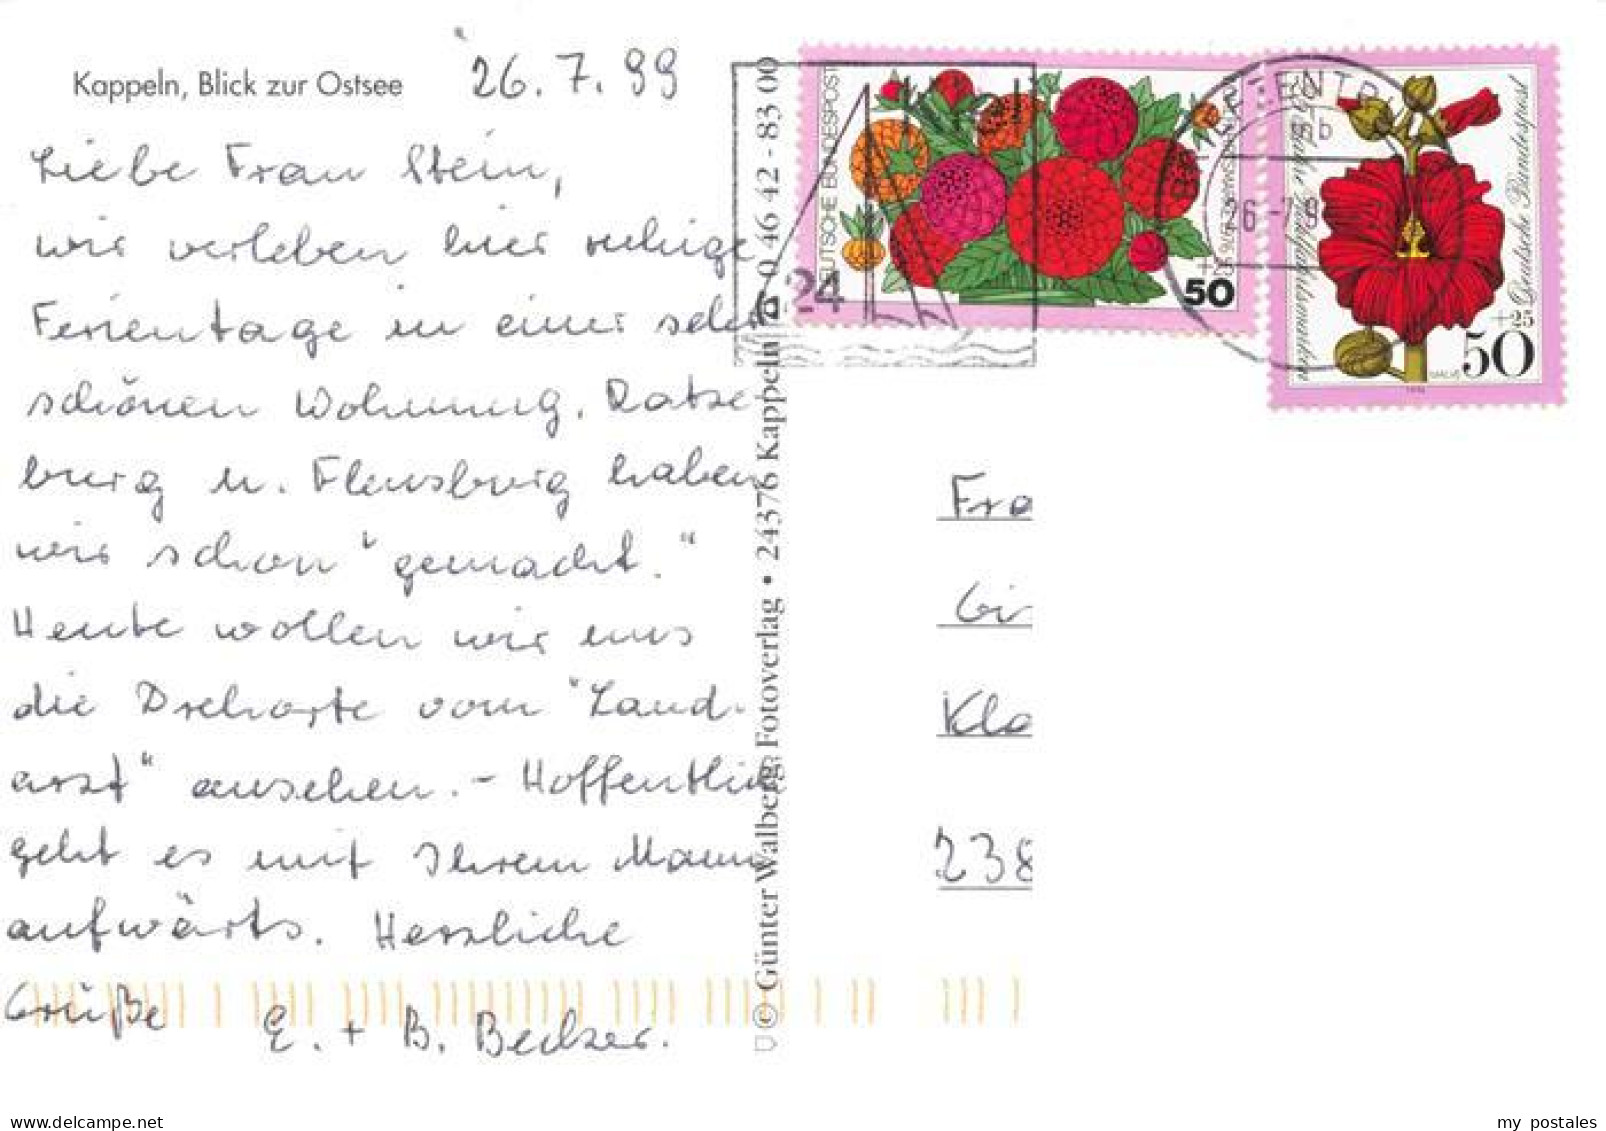 Kappeln, Blick zur Ostsee
26.7.99
Liebe Frau Stein,
wir verleben hier ruhige
Ferientage in einer sehr
schönen Wohnung. Ratze-
burg u. Flensburg haben
wir schon "gemacht."
Heute wollen wir uns
die Drehorte vom "Land-
arzt" ansehen. - Hoffentlich
geht es mit Ihrem Mann
aufwärts. Herzliche
Grüße
E. + B. Becker.
© Günter Walberg, Fotoverlag • 24376 Kappeln 0 46 42 - 83 00
24
DEUTSCHE BUNDESPOST
50
Deutsche Bundespost
+25
50
26.-7.9
mb
Fra
Gi
Kla
238
www.delcampe.net
my postales